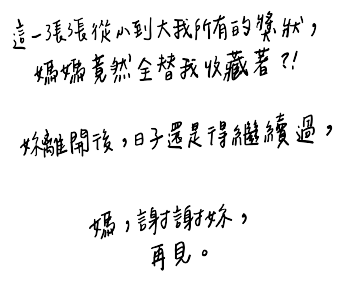 這一張張從小到大我所有的獎狀，
媽媽竟然全替我收藏著？！
妳離開後，日子還是得繼續過，
媽，謝謝妳，
再見。